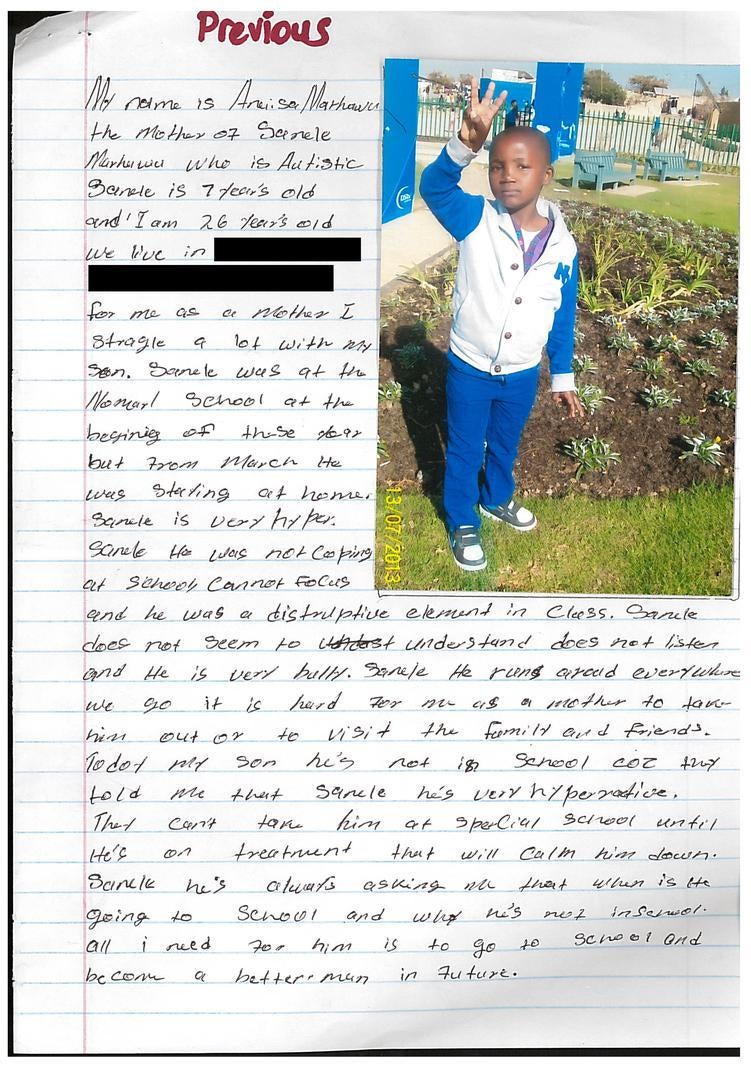 Previous
My name is Anelisa Marhawu
the Mother of Sanele
Marhawu who is Autistic
Sanele is 7 year's old
and I am 26 year's old
we live in
for me as a Mother I
stragle a lot with my
son. Sanele was at the
Nomarl School at the
begining of these year
but from March He
was staying at home.
Sanele is very hyper.
Sanele He was not Coping
at School, Cannot Focus
and he was a distruptive element in Class. Sanele
does not seem to understand does not listen
and He is very bully. Sanele He runs aroud everywhere
we go it is hard for me as a mother to take
him out or to visit the family and friends.
Today my son he's not in School coz they
told me that Sanele he's very hyperactive.
They can't take him at special School until
He's on treatment that will calm him down.
Sanele he's always asking me that when is He
going to School and why he's not inschool.
all i need for him is to go to School and
become a better man in future.
13/07/2013